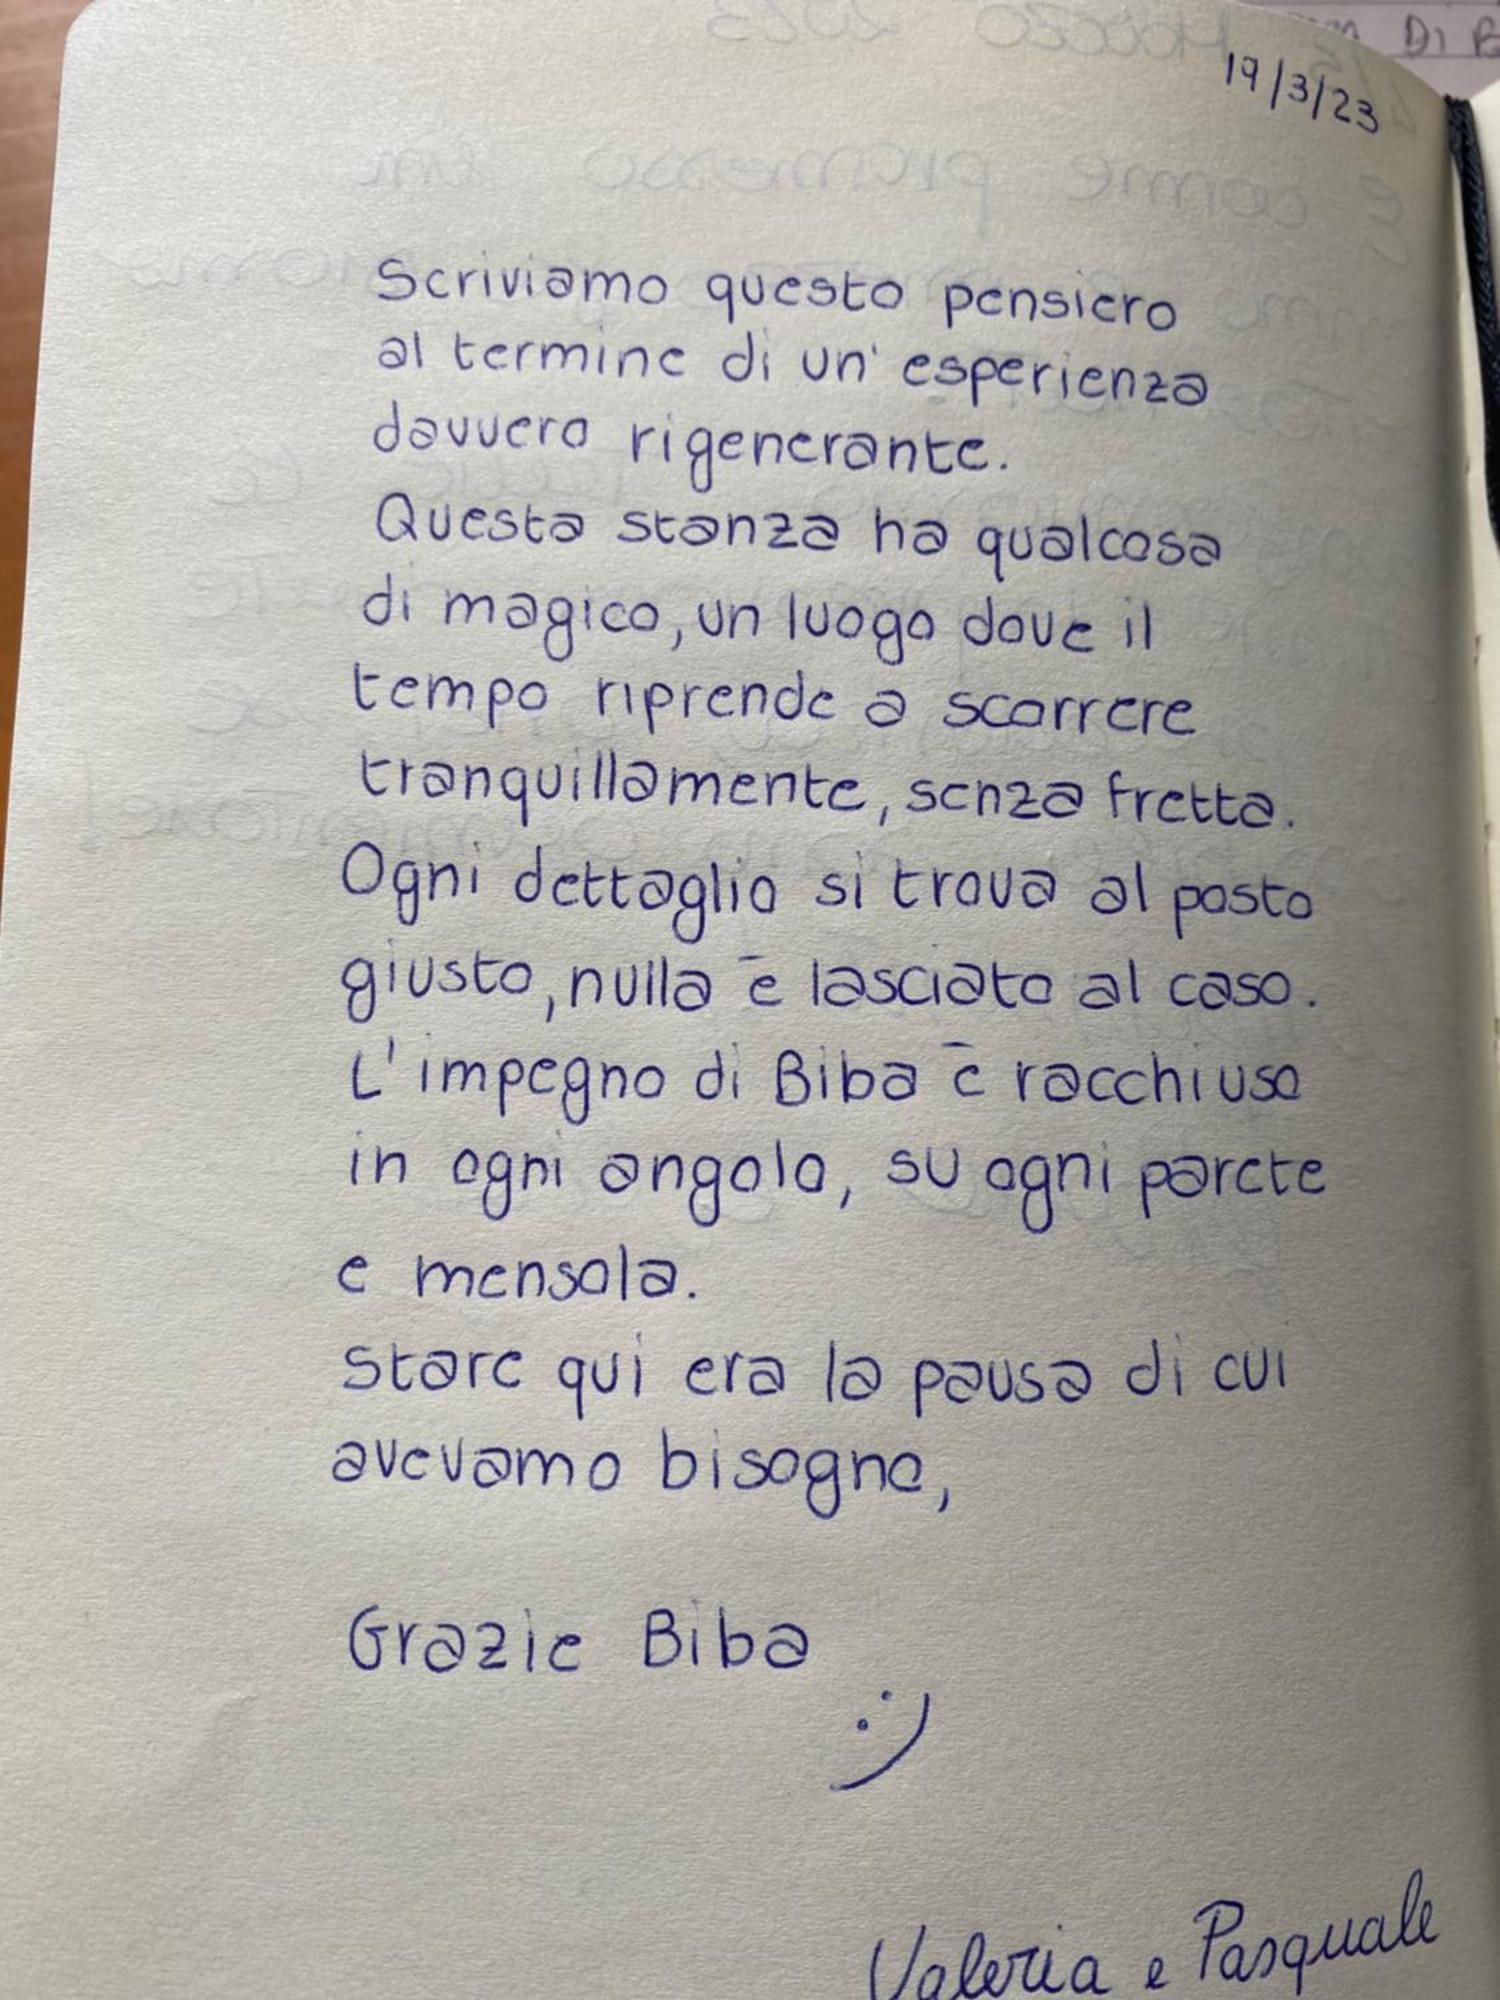 19/3/23
Scriviamo questo pensiero
al termine di un'esperienza
davvero rigenerante.
Questa stanza ha qualcosa
di magico, un luogo dove il
tempo riprende a scorrere
tranquillamente, senza fretta.
Ogni dettaglio si trova al posto
giusto, nulla è lasciato al caso.
L'impegno di Biba è racchiuso
in ogni angolo, su ogni parete
e mensola.
Stare qui era la pausa di cui
avevamo bisogno,
Grazie Biba
:)
Valeria e Pasquale